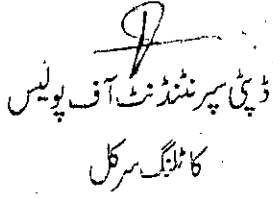 ڈپٹی سپرنٹنڈنٹ آف پولیس
کاٹلنگ سرکل